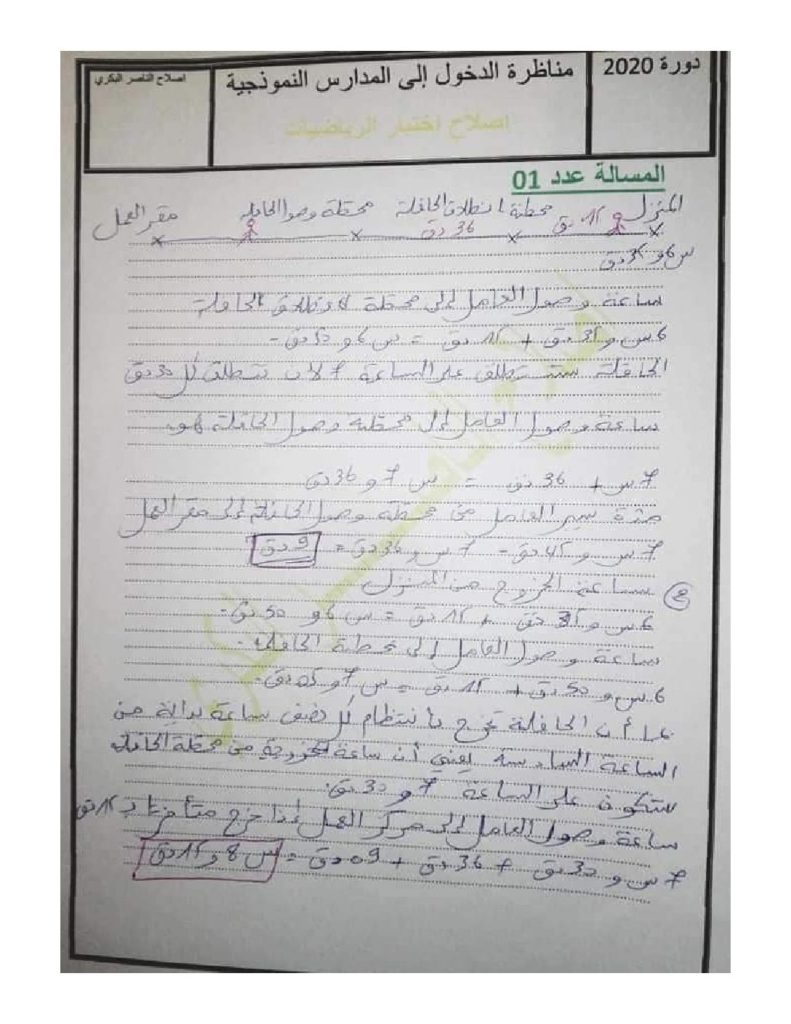 دورة 2020
مناظرة الدخول إلى المدارس النموذجية
اصلاح الناصر البكري
اصلاح اختبار الرياضيات
المسالة عدد 01
المنزل 15 دق محطة انطلاق الحافلة 36 دق محطة وصول الحافلة مقر العمل
س6 و 35 دق
ساعة وصول العامل إلى محطة انطلاق الحافلة
6 س و 35 دق + 15 دق = س 6 و 50 دق -
الحافلة ستنطلق على الساعة 7 لأن تنطلق كل 30 دق
ساعة وصول العامل إلى محطة وصول الحافلة هو
7 س + 36 دق = س 7 و 36 دق
مدة سير العامل من محطة وصول الحافلة إلى مقر العمل
7 س و 45 دق - 7 س و 36 دق = 9 دق
2 ساعة الخروج من المنزل
6 س و 35 دق + 15 دق = س 6 و 50 دق -
ساعة وصول العامل إلى محطة الحافلة -
6 س و 50 دق + 15 دق = س 7 و 05 دق -
بما أن الحافلة تخرج بانتظام كل نصف ساعة بداية من
الساعة السادسة يعني أن ساعة الخروج من محطة الحافلة
ستكون على الساعة 7 و 30 دق
ساعة وصول العامل إلى مركز العمل إذا خرج متأخرا بـ 15 دق
7 س و 30 دق + 36 دق + 09 دق = س 8 و 15 دق